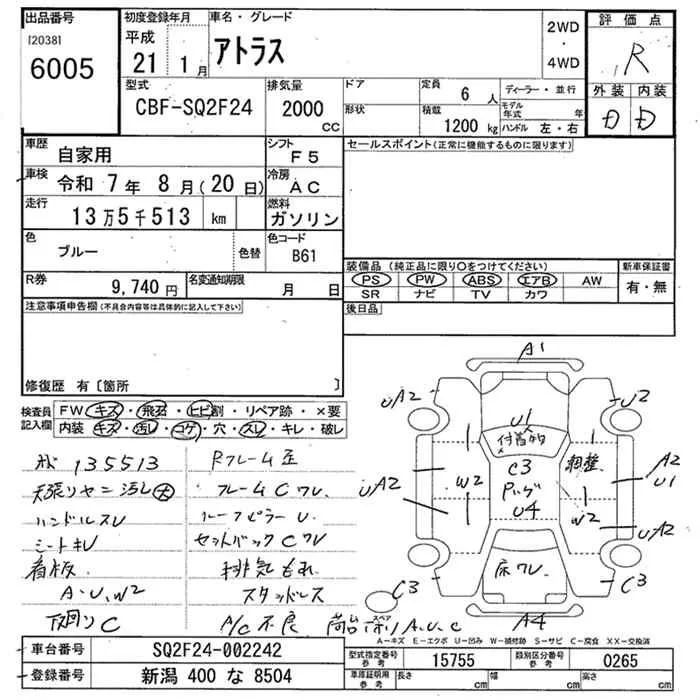 出品番号
[2038]
6005
初度登録年月
平成
21 1月
車名・グレード
アトラス
2WD
・
4WD
評価点
R
外装 内装
D D
型式
CBF-SQ2F24
排気量
2000
cc
ドア
形状
定員
6人
積載
1200kg
ディーラー・並行
モデル年式 年
ハンドル 左・右
車歴
自家用
シフト
F5
セールスポイント(正常に機能するものに限ります)
車検
令和 7年 8月(20日)
冷房
AC
走行
13万5千513 km
燃料
ガソリン
色
ブルー
色替
色コード
B61
R券
9,740円
名変通知期限
月 日
装備品(純正品に限り○をつけてください)
PS PW ABS エアB AW
SR ナビ TV カワ
新車保証書
有・無
注意事項申告欄(不具合内容等は具体的に記入して下さい)
後日品
修復歴 有〔箇所 〕
検査員記入欄
FW キズ・飛石・ヒビ割・リペア跡・×要
内装 キズ・汚レ・コゲ・穴・スレ・キレ・破レ
135513
Rフレーム歪
天張りヤニ汚レ大
フレームCワレ
ハンドルスレ
ルーフピラーU
シートキレ
セットバックCワレ
看板
排気もれ
A・U、W2
スタッドレス
下廻りC
A/C不良
荷台 A、U、C
A1
UA2
U2
U1
付着物
C3
Pハゲ
U4
W2
調整
A2
U1
UA2
UA2
W2
UA2
床ワレ
C3
C3
A4
A-キズ E-エクボ U-凹み W-補修跡 S-サビ C-腐食 XX-交換済
車台番号
SQ2F24-002242
型式指定番号
参考
15755
類別区分番号
参考
0265
登録番号
新潟 400 な 8504
車庫証明用
参考
長さ cm
幅 cm
高さ cm